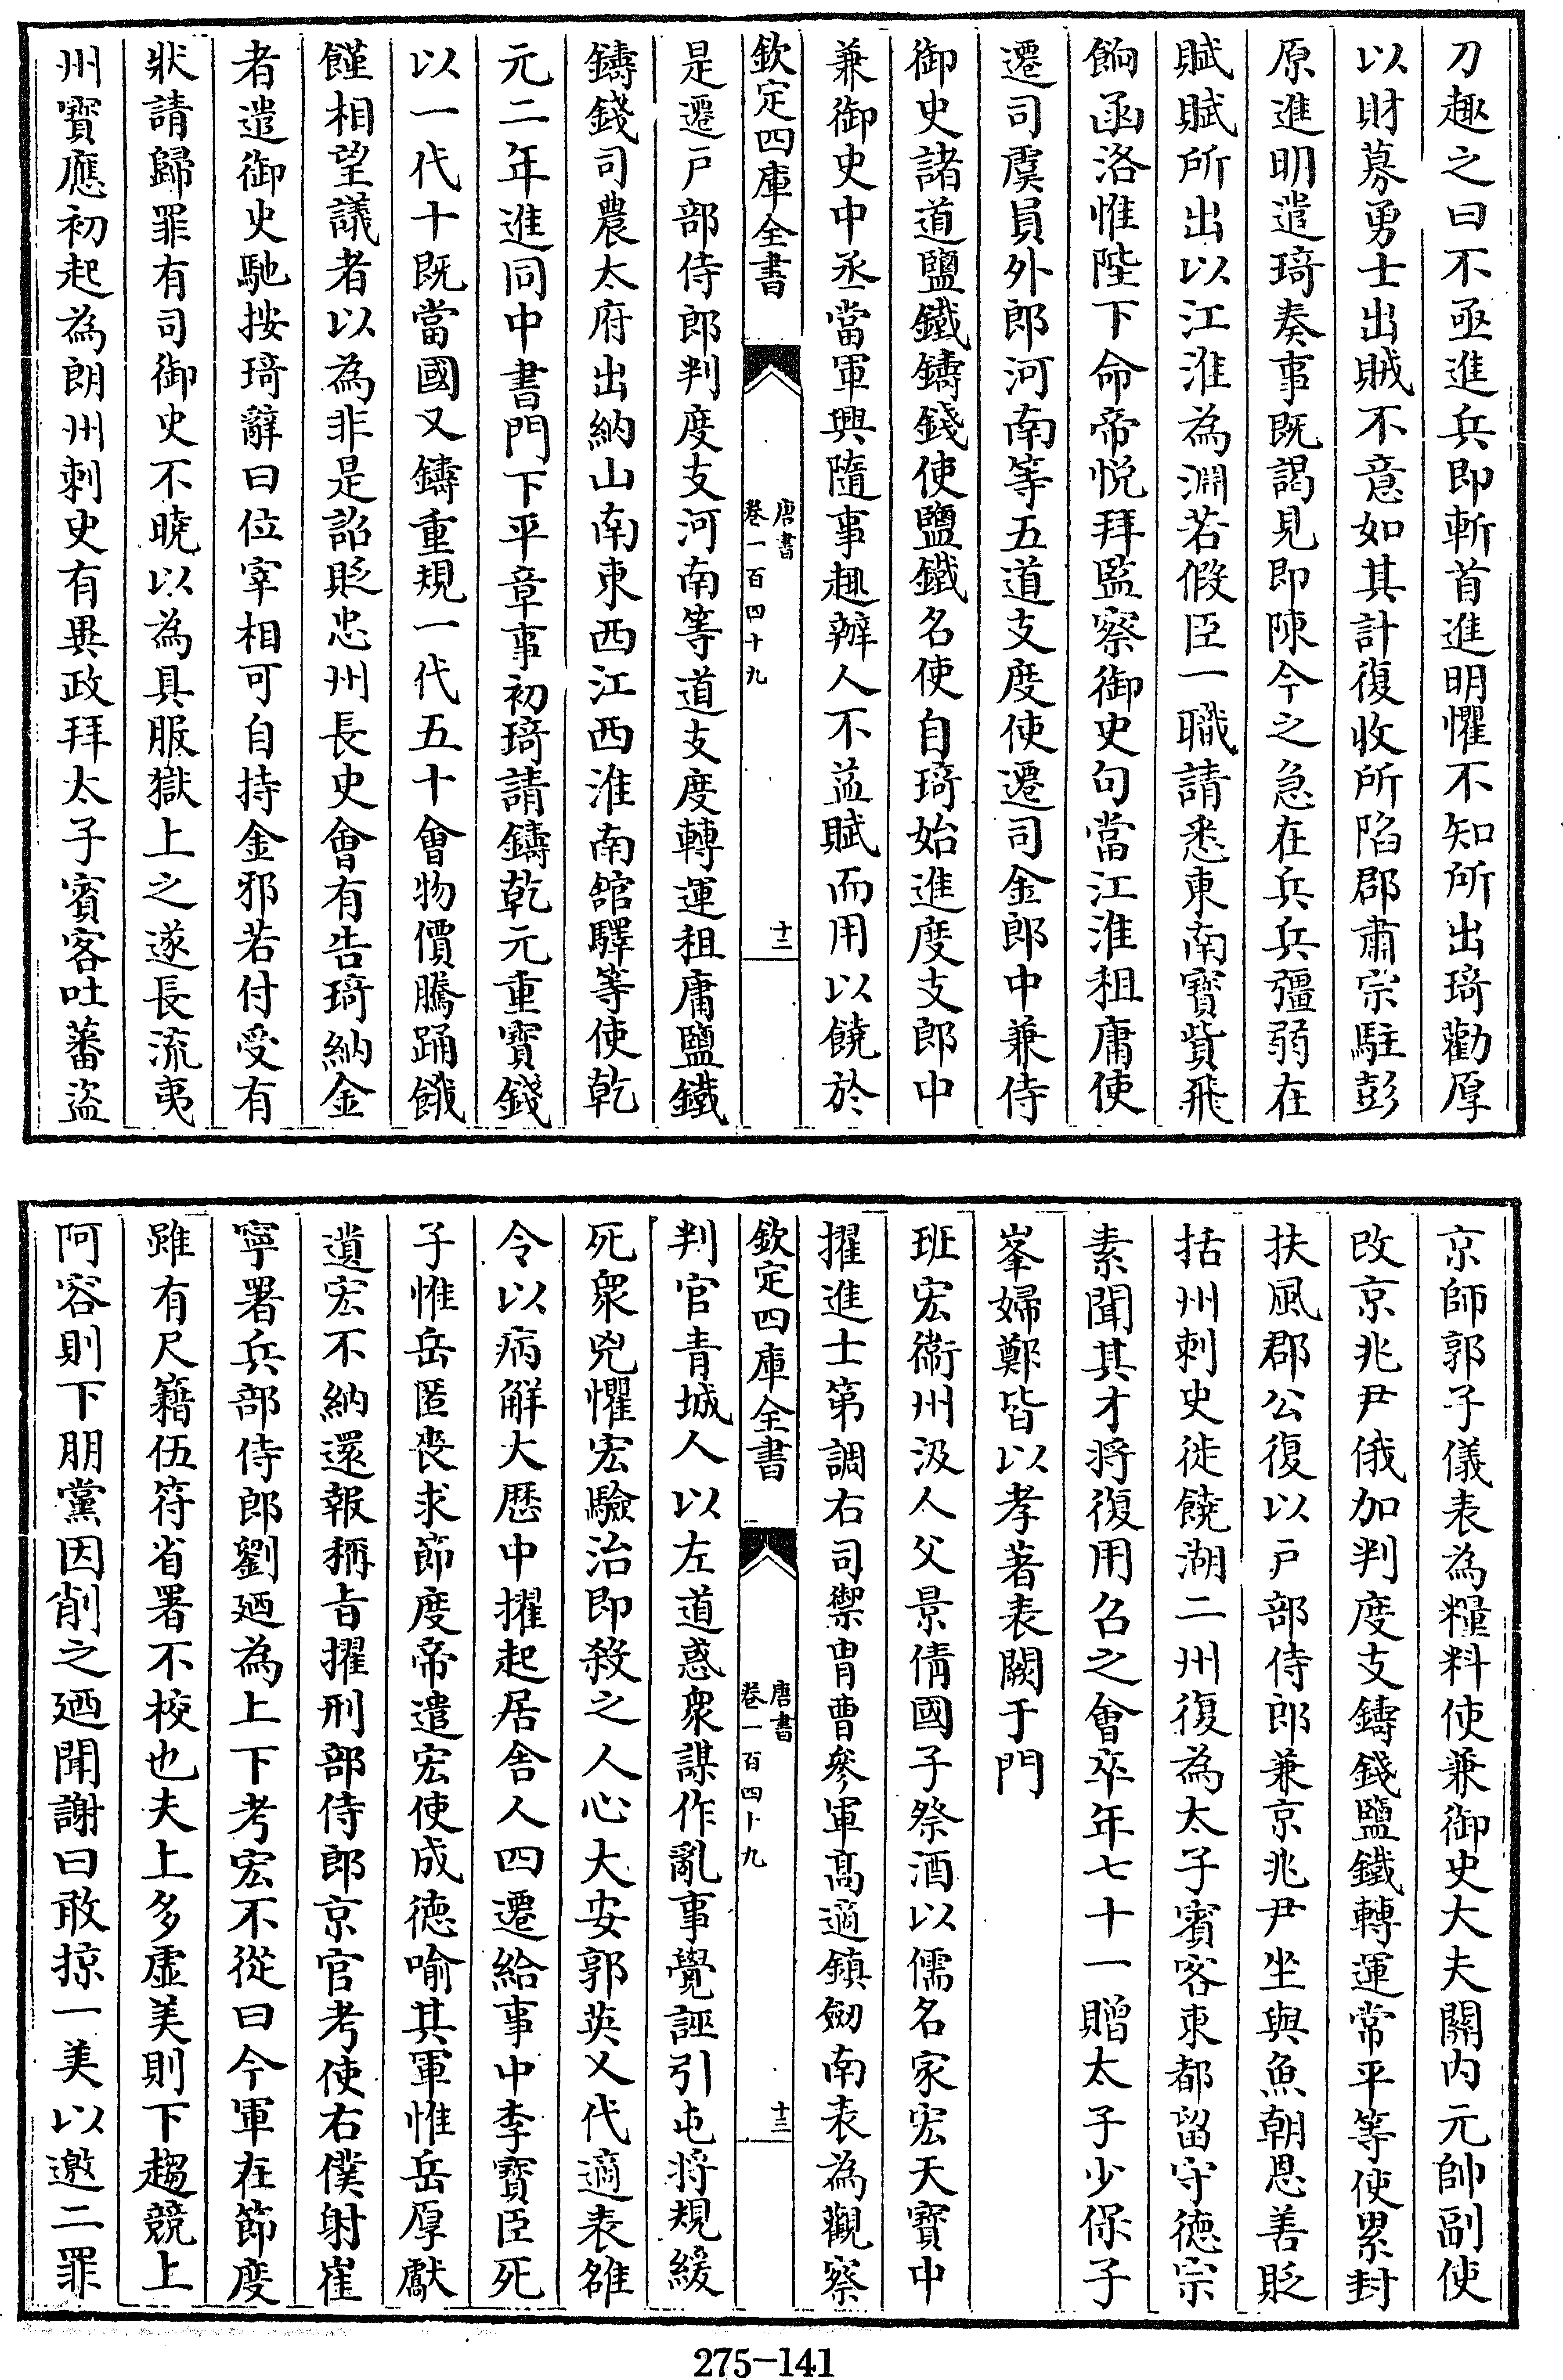 刀趣之曰不亟進兵即斬首進明懼不知所出琦勸厚
以財募勇士出賊不意如其計復收所陷郡肅宗駐彭
原進明遣琦奏事既謁見即陳今之急在兵兵彊弱在
賦賦所出以江淮為淵若假臣一職請悉東南寶貲飛
餉函洛惟陛下命帝悅拜監察御史句當江淮租庸使
遷司虞員外郎河南等五道支度使遷司金郎中兼侍
御史諸道鹽鐵鑄錢使鹽鐵名使自琦始進度支郎中
兼御史中丞當軍興隨事趣辦人不益賦而用以饒於
欽定四庫全書
唐書
卷一百四十九
十二
是遷戶部侍郎判度支河南等道支度轉運租庸鹽鐵
鑄錢司農太府出納山南東西江西淮南館驛等使乾
元二年進同中書門下平章事初琦請鑄乾元重寶錢
以一代十既當國又鑄重規一代五十會物價騰踊餓
饉相望議者以為非是詔貶忠州長史會有告琦納金
者遣御史馳按琦辭曰位宰相可自持金邪若付受有
狀請歸罪有司御史不曉以為具服獄上之遂長流夷
州寶應初起為朗州刺史有異政拜太子賓客吐蕃盜
京師郭子儀表為糧料使兼御史大夫關內元帥副使
改京兆尹俄加判度支鑄錢鹽鐵轉運常平等使累封
扶風郡公復以戶部侍郎兼京兆尹坐與魚朝恩善貶
括州刺史徙饒湖二州復為太子賓客東都留守德宗
素聞其才將復用召之會卒年七十一贈太子少保子
峯婦鄭皆以孝著表闕于門
班宏衞州汲人父景倩國子祭酒以儒名家宏天寶中
擢進士第調右司禦胄曹參軍高適鎮劒南表為觀察
欽定四庫全書
唐書
卷一百四十九
十三
判官青城人以左道惑衆謀作亂事覺誣引屯將規緩
死衆兇懼宏驗治即殺之人心大安郭英乂代適表雒
令以病解大歷中擢起居舍人四遷給事中李寶臣死
子惟岳匿喪求節度帝遣宏使成德喻其軍惟岳厚獻
遺宏不納還報稱旨擢刑部侍郎京官考使右僕射崔
寧署兵部侍郎劉廼為上下考宏不從曰今軍在節度
雖有尺籍伍符省署不校也夫上多虛美則下趨競上
阿容則下朋黨因削之廼聞謝曰敢掠一美以邀二罪
275-141